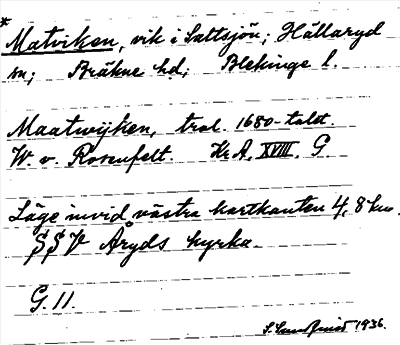 * Matviken, vik i Saltsjön; Hällaryd
sn; Bräkne hd; Blekinge l.
Maatwijken, trol. 1680-talet.
W. v. Rosenfelt. Kr. A. XVIII. G.
Läge invid västra kartkanten 4,8 km
SSV Åryds kyrka.
G. 11.
S. Sundqvist 1936.